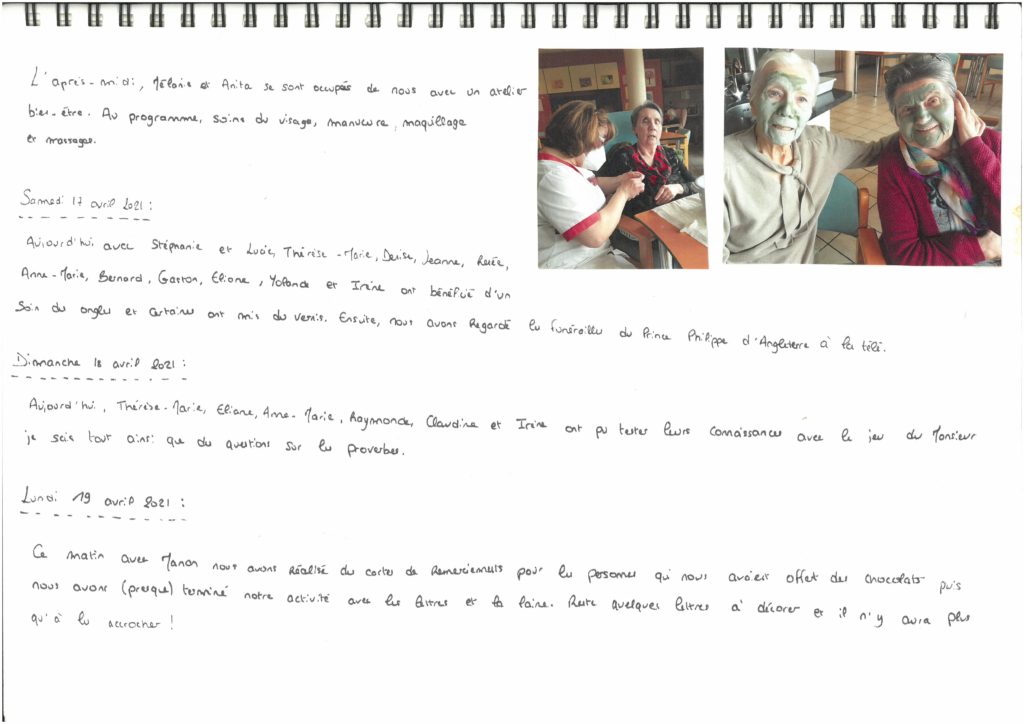 L'après-midi, Mélanie et Anita se sont occupés de nous avec un atelier
bien-être. Au programme, soins du visage, manucure, maquillage
et massages.
Samedi 17 avril 2021 :
Aujourd'hui avec Stéphanie et Lucie, Thérèse-Marie, Denise, Jeanne, Renée,
Anne-Marie, Bernard, Gaston, Eliane, Yolande et Irène ont bénéficié d'un
Soin des ongles et certaines ont mis du vernis. Ensuite, nous avons Regardé les funérailles du Prince Philippe d'Angleterre à la télé.
Dimanche 18 avril 2021 :
Aujourd'hui, Thérèse-Marie, Eliane, Anne-Marie, Raymonde, Claudine et Irène ont pu tester leurs connaissances avec le jeu du Monsieur
je sais tout ainsi que des questions sur les proverbes.
Lundi 19 avril 2021 :
Ce matin avec Manon nous avons Réalisé des cartes de Remerciements pour les personnes qui nous avaient offert des chocolats puis
nous avons (presque) terminé notre activité avec les lettres et la laine. Reste quelques lettres à décorer et il n'y aura plus
qu'à les accrocher !